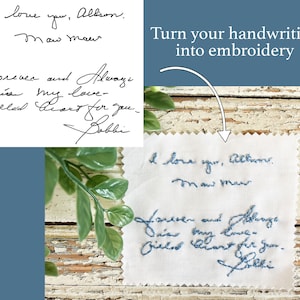 love you, Allison.
Maw Maw
Forever and Always
my love-
heart for you.
Bobbi
Turn your handwriti
into embroidery
I love you, Allison.
Maw Maw
Forever and Always
my love-
heart for you.
Bobbi